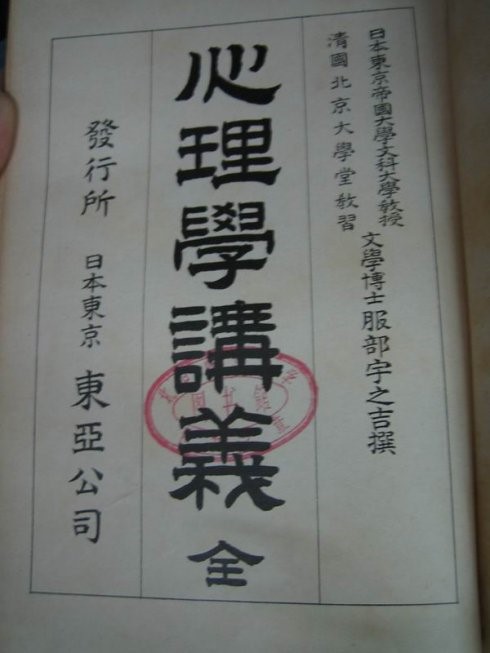 日本東京帝國大學文科大學教授
清國北京大學堂教習
文學博士服部宇之吉撰
心理學講義全
發行所 日本東京 東亞公司